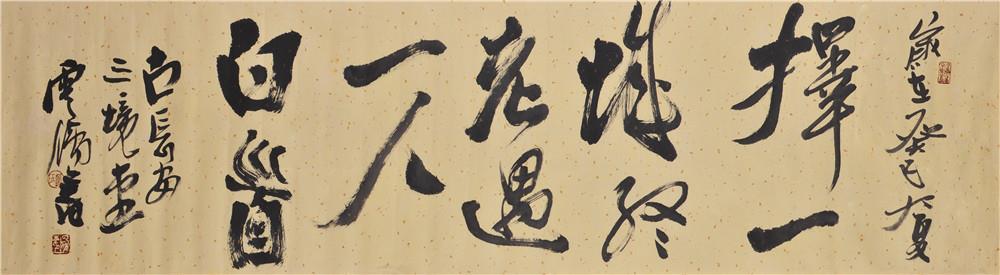 岁在癸巳大夏
择一
城终
老遇
一人
白首
古长安
三境堂
云